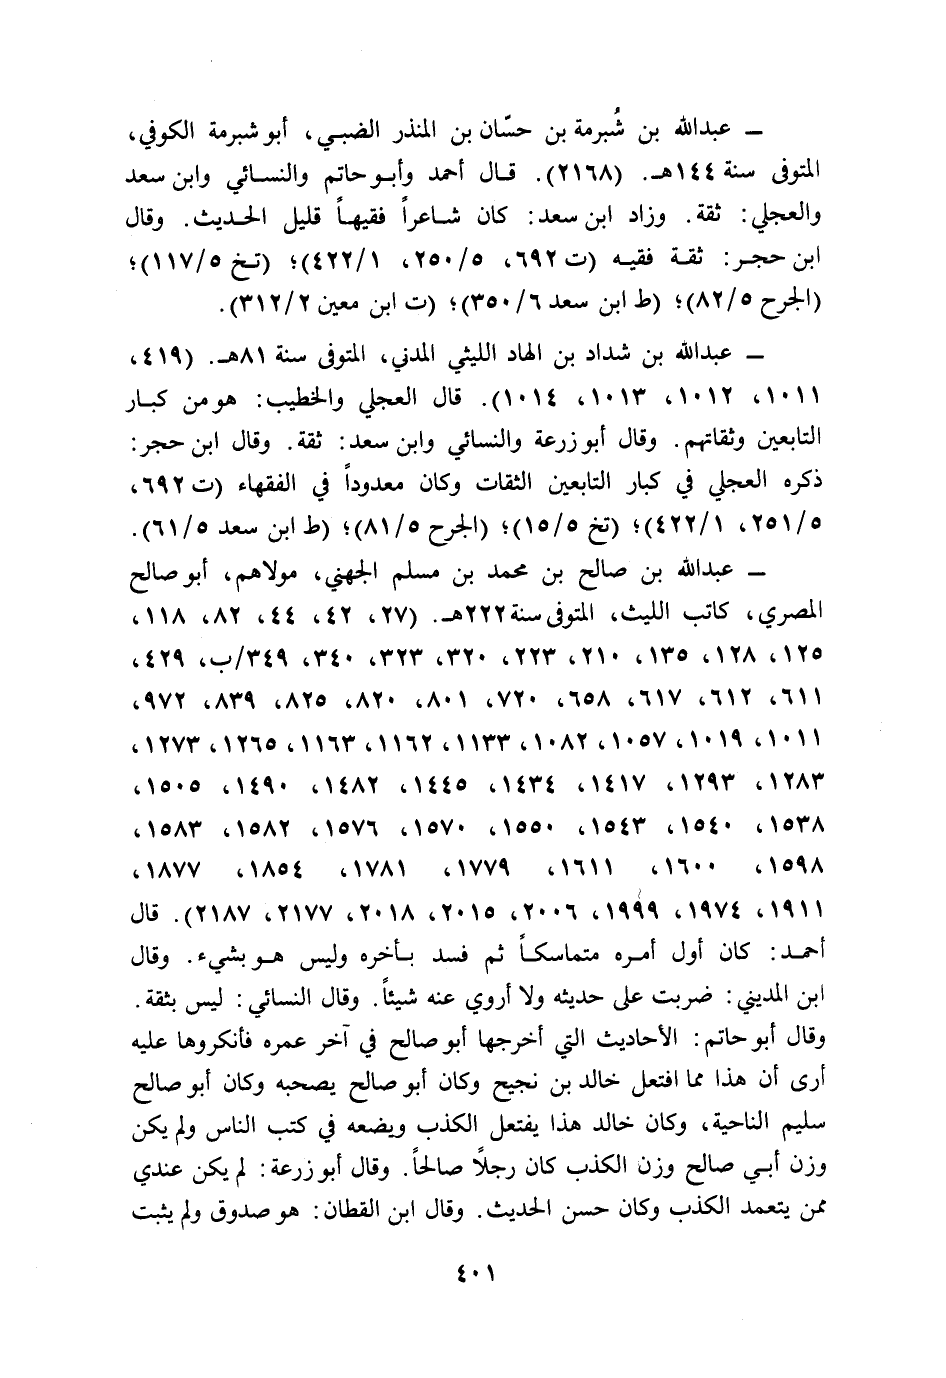 ــ عبدالله بن شُبرمة بن حسّان بن المنذر الضبـي، أبو شبرمة الكوفي،
المتوفى سنة ١٤٤هـ. (٢١٦٨). قـال أحمد وأبـو حاتم والنسـائي وابن سعد
والعجلي: ثقة. وزاد ابن سعد: كان شـاعراً فقيهـاً قليل الحـديث. وقال
ابن حجـر: ثقـة فقيـه (ت ٦٩٢، ٢٥٠/٥، ٤٢٢/١)؛ (تـخ ١١٧/٥)؛
(الجرح ٨٢/٥)؛ (ط ابن سعد ٣٥٠/٦)؛ (ت ابن معين ٣١٢/٢).
ــ عبدالله بن شداد بن الهاد الليثي المدني، المتوفى سنة ٨١هـ. (٤١٩،
١٠١١، ١٠١٢، ١٠١٣، ١٠١٤). قال العجلي والخطيب: هو من كبـار
التابعين وثقاتهم. وقال أبو زرعة والنسائي وابن سعد: ثقة. وقال ابن حجر:
ذكره العجلي في كبار التابعين الثقات وكان معدوداً في الفقهاء (ت ٦٩٢،
٢٥١/٥، ٤٢٢/١)؛ (تخ ١٥/٥)؛ (الجرح ٨١/٥)؛ (ط ابن سعد ٦١/٥).
ــ عبدالله بن صالح بن محمد بن مسلم الجهني، مولاهم، أبو صالح
المصري، كاتب الليث، المتوفى سنة ٢٢٢هـ. (٢٧، ٤٢، ٤٤، ٨٢، ١١٨،
١٢٥، ١٢٨، ١٣٥، ٢١٠، ٢٢٣، ٣٢٠، ٣٢٣، ٣٤٠، ٣٤٩/ب، ٤٢٩،
٦١١، ٦١٢، ٦١٧، ٦٥٨، ٧٢٠، ٨٠١، ٨٢٠، ٨٢٥، ٨٣٩، ٩٧٢،
١٠١١، ١٠١٩، ١٠٥٧، ١٠٨٢، ١١٣٣، ١١٦٢، ١١٦٣، ١٢٦٥، ١٢٧٣،
١٢٨٣، ١٢٩٣، ١٤١٧، ١٤٣٤، ١٤٤٥، ١٤٨٢، ١٤٩٠، ١٥٠٥،
١٥٣٨، ١٥٤٠، ١٥٤٣، ١٥٥٠، ١٥٧٠، ١٥٧٦، ١٥٨٢، ١٥٨٣،
١٥٩٨، ١٦٠٠، ١٦١١، ١٧٧٩، ١٧٨١، ١٨٥٤، ١٨٧٧،
١٩١١، ١٩٧٤، ١٩٩٩، ٢٠٠٦، ٢٠١٥، ٢٠١٨، ٢١٧٧، ٢١٨٧). قال
أحمـد: كان أول أمـره متماسكـاً ثم فسد بـأخره وليس هـو بشيء. وقال
ابن المديني: ضربت على حديثه ولا أروي عنه شيئاً. وقال النسائي: ليس بثقة.
وقال أبو حاتم: الأحاديث التي أخرجها أبو صالح في آخر عمره فأنكروها عليه
أرى أن هذا مما افتعل خالد بن نجيح وكان أبو صالح يصحبه وكان أبو صالح
سليم الناحية، وكان خالد هذا يفتعل الكذب ويضعه في كتب الناس ولم يكن
وزن أبـي صالح وزن الكذب كان رجلًا صالحاً. وقال أبو زرعة: لم يكن عندي
ممن يتعمد الكذب وكان حسن الحديث. وقال ابن القطان: هو صدوق ولم يثبت
٤٠١